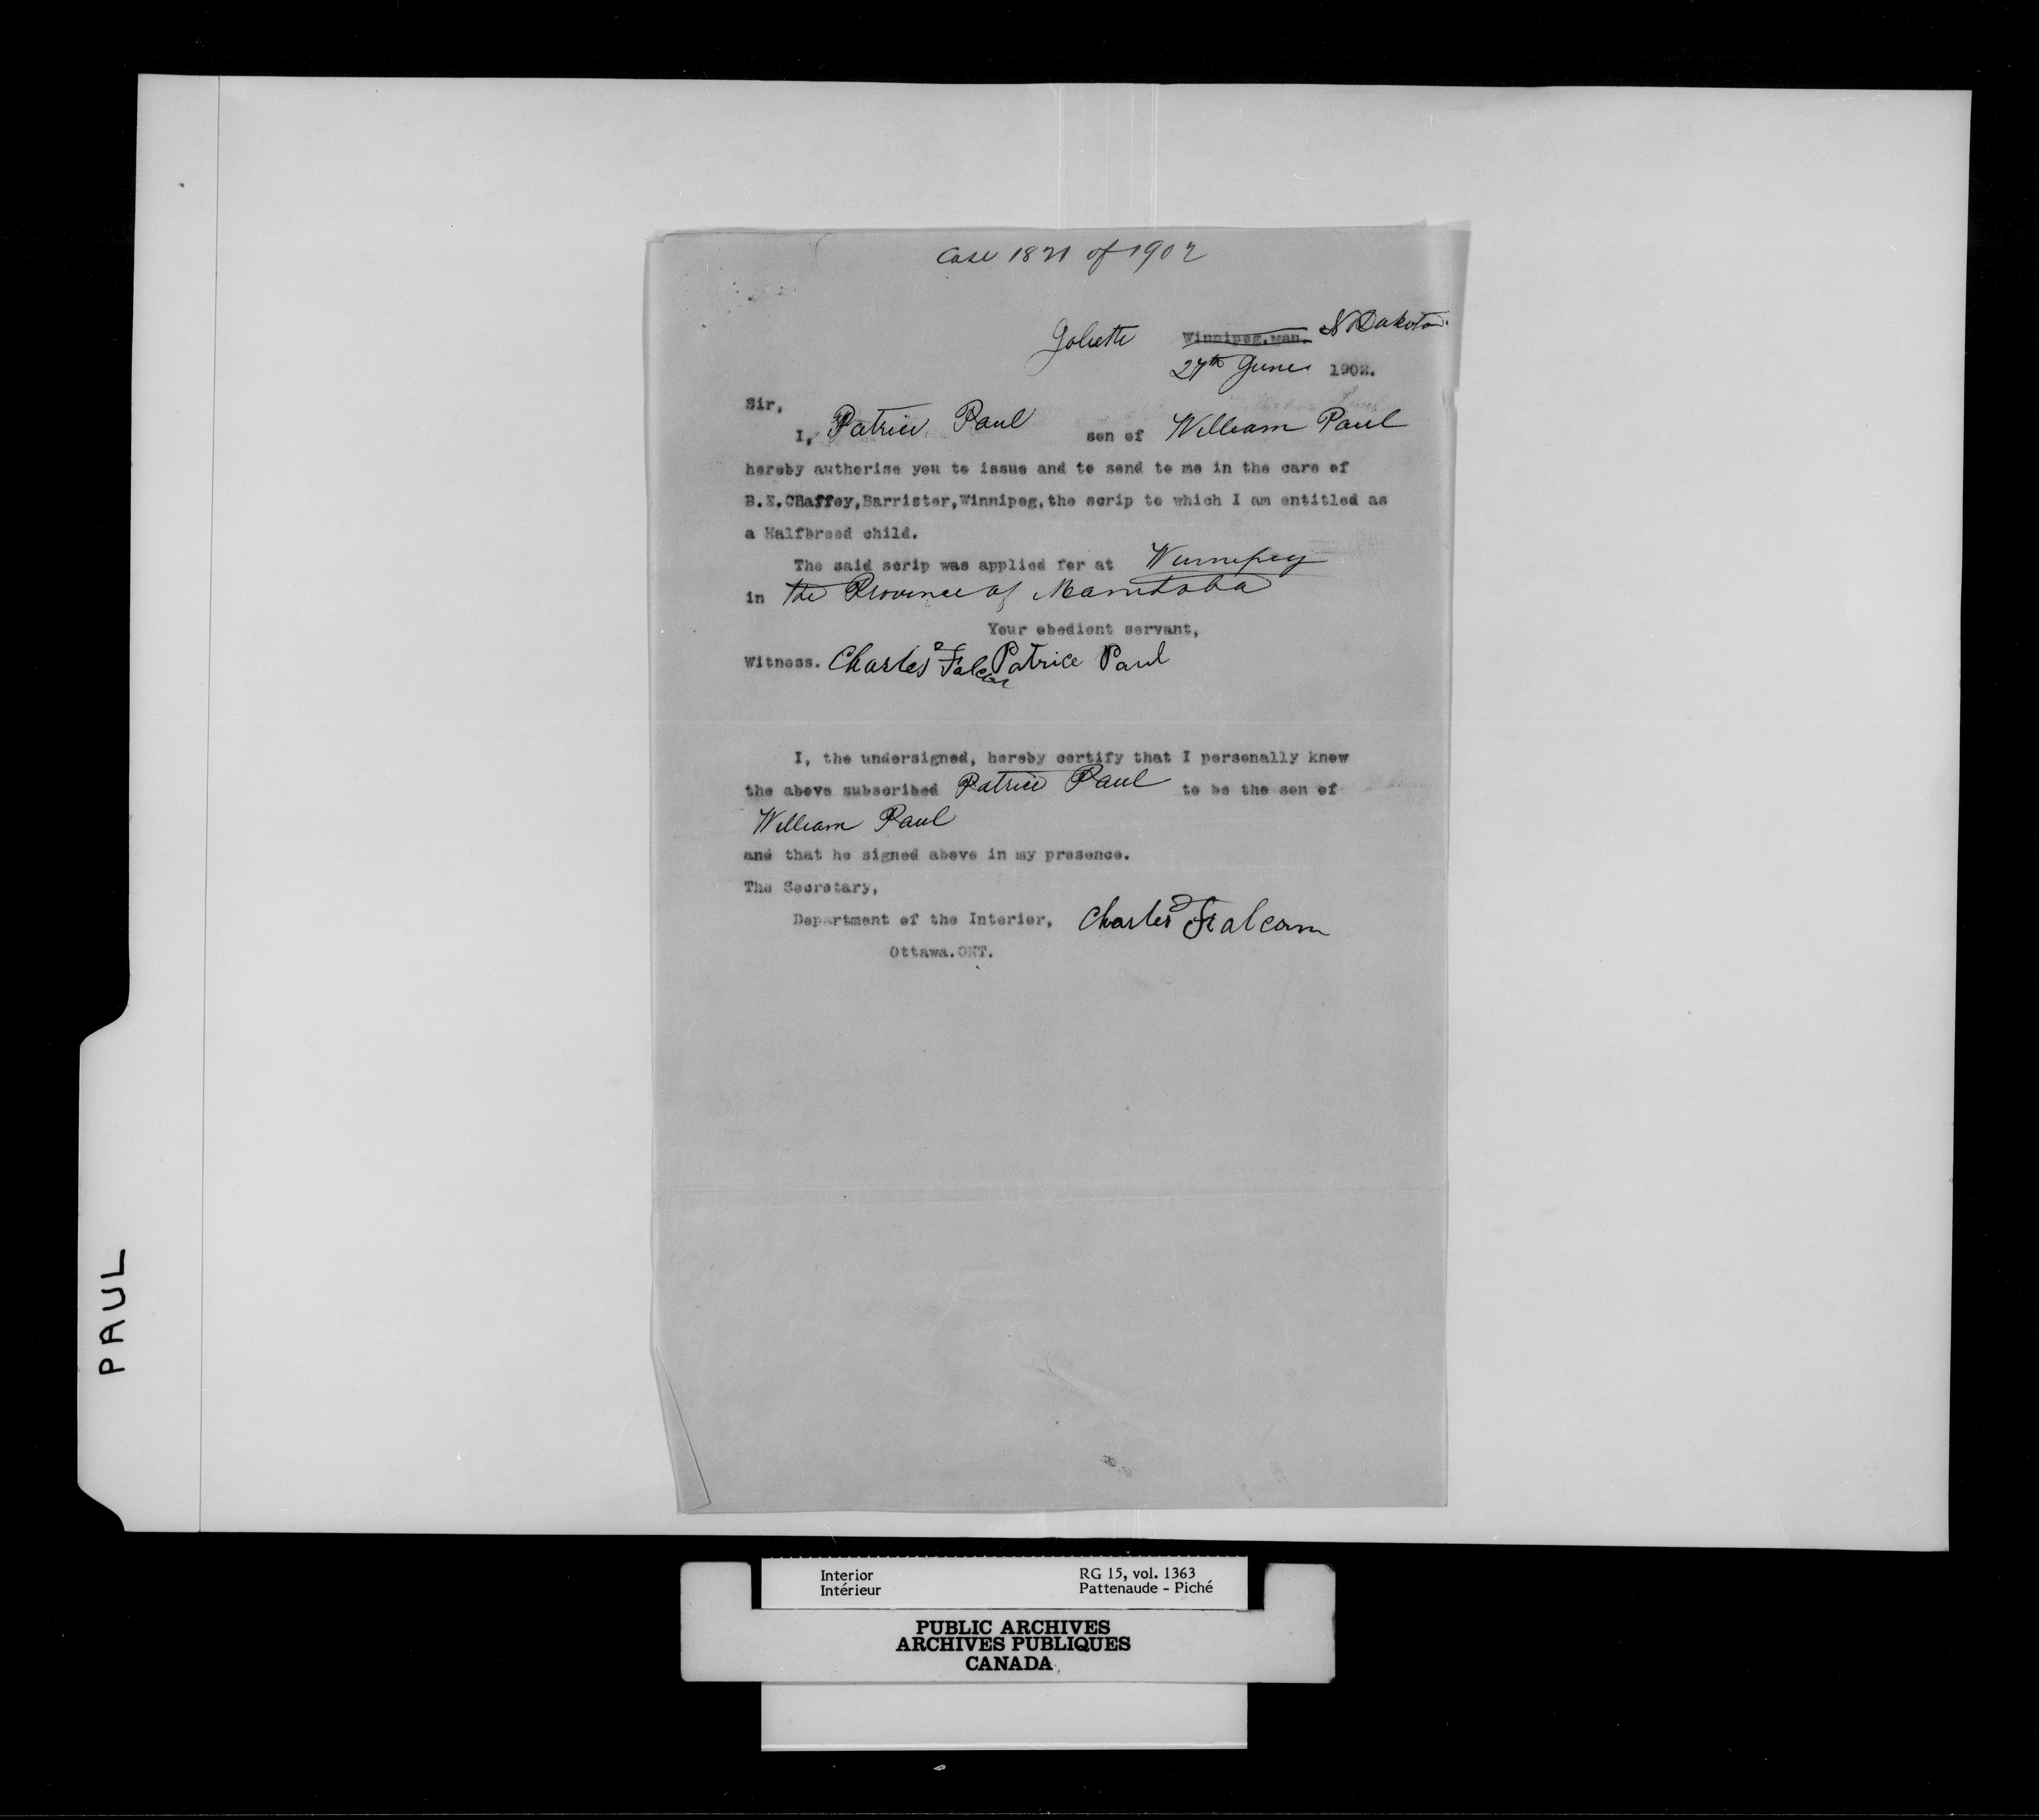 Case 1821 of 1902
Joliette Winnipeg.Man. N Dakota.
27th June 1902.
Sir,
I, Patrice Paul son of William Paul
hereby autherise you to issue and to send to me in the care of
B.E.CHaffey,Barrister,Winnipeg,the scrip to which I am entitled as
a Halfbreed child.
The said scrip was applied for at Winnipeg
in the Province of Manitoba
Your obedient servant,
Witness. Charles Falcon Patrice Paul
I, the undersigned, hereby certify that I personally know
the above subscribed Patrice Paul to be the son of
William Paul
and that he signed above in my presence.
The Secretary,
Department of the Interior, Charles Falcon
Ottawa.ONT.
PAUL
Interior RG 15, vol. 1363
Intérieur Pattenaude - Piché
PUBLIC ARCHIVES
ARCHIVES PUBLIQUES
CANADA